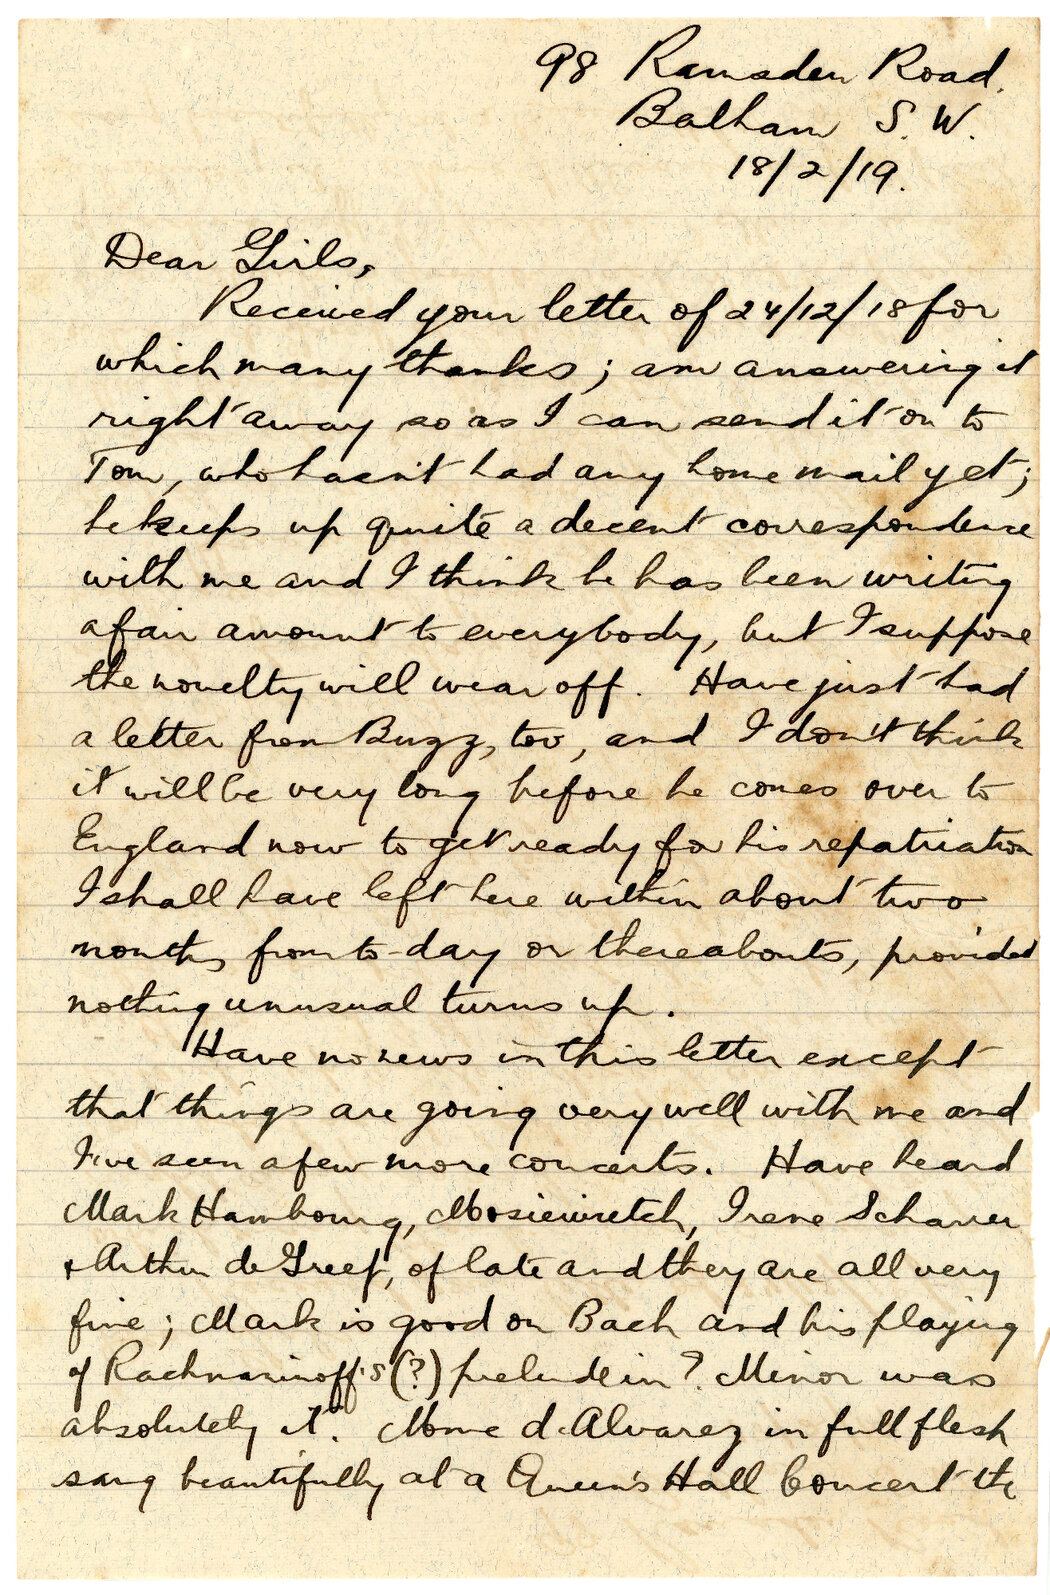 98 Ramsden Road.
Balham S. W.
18/2/19.
Dear Girls,
Received your letter of 24/12/18 for
which many thanks; am answering it
right away so as I can send it on to
Tom, who hasn't had any home mail yet;
he keeps up quite a decent correspondence
with me and I think he has been writing
a fair amount to everybody, but I suppose
the novelty will wear off. Have just had
a letter from Buzz, too, and I don't think
it will be very long before he comes over to
England now to get ready for his repatriation
I shall have left here within about two
months from to-day or thereabouts, provided
nothing unusual turns up.
Have no news in this letter except
that things are going very well with me and
I've seen a few more concerts. Have heard
Mark Hambourg, Mosiewietch, Irene Scharrer
& Arthur de Greef, of late and they are all very
fine; Mark is good on Bach and his playing
of Rachmaninoff's (?) prelude in ? Minor was
absolutely it. Mme d'Alvarez in full flesh
sang beautifully at a Queen's Hall Concert the